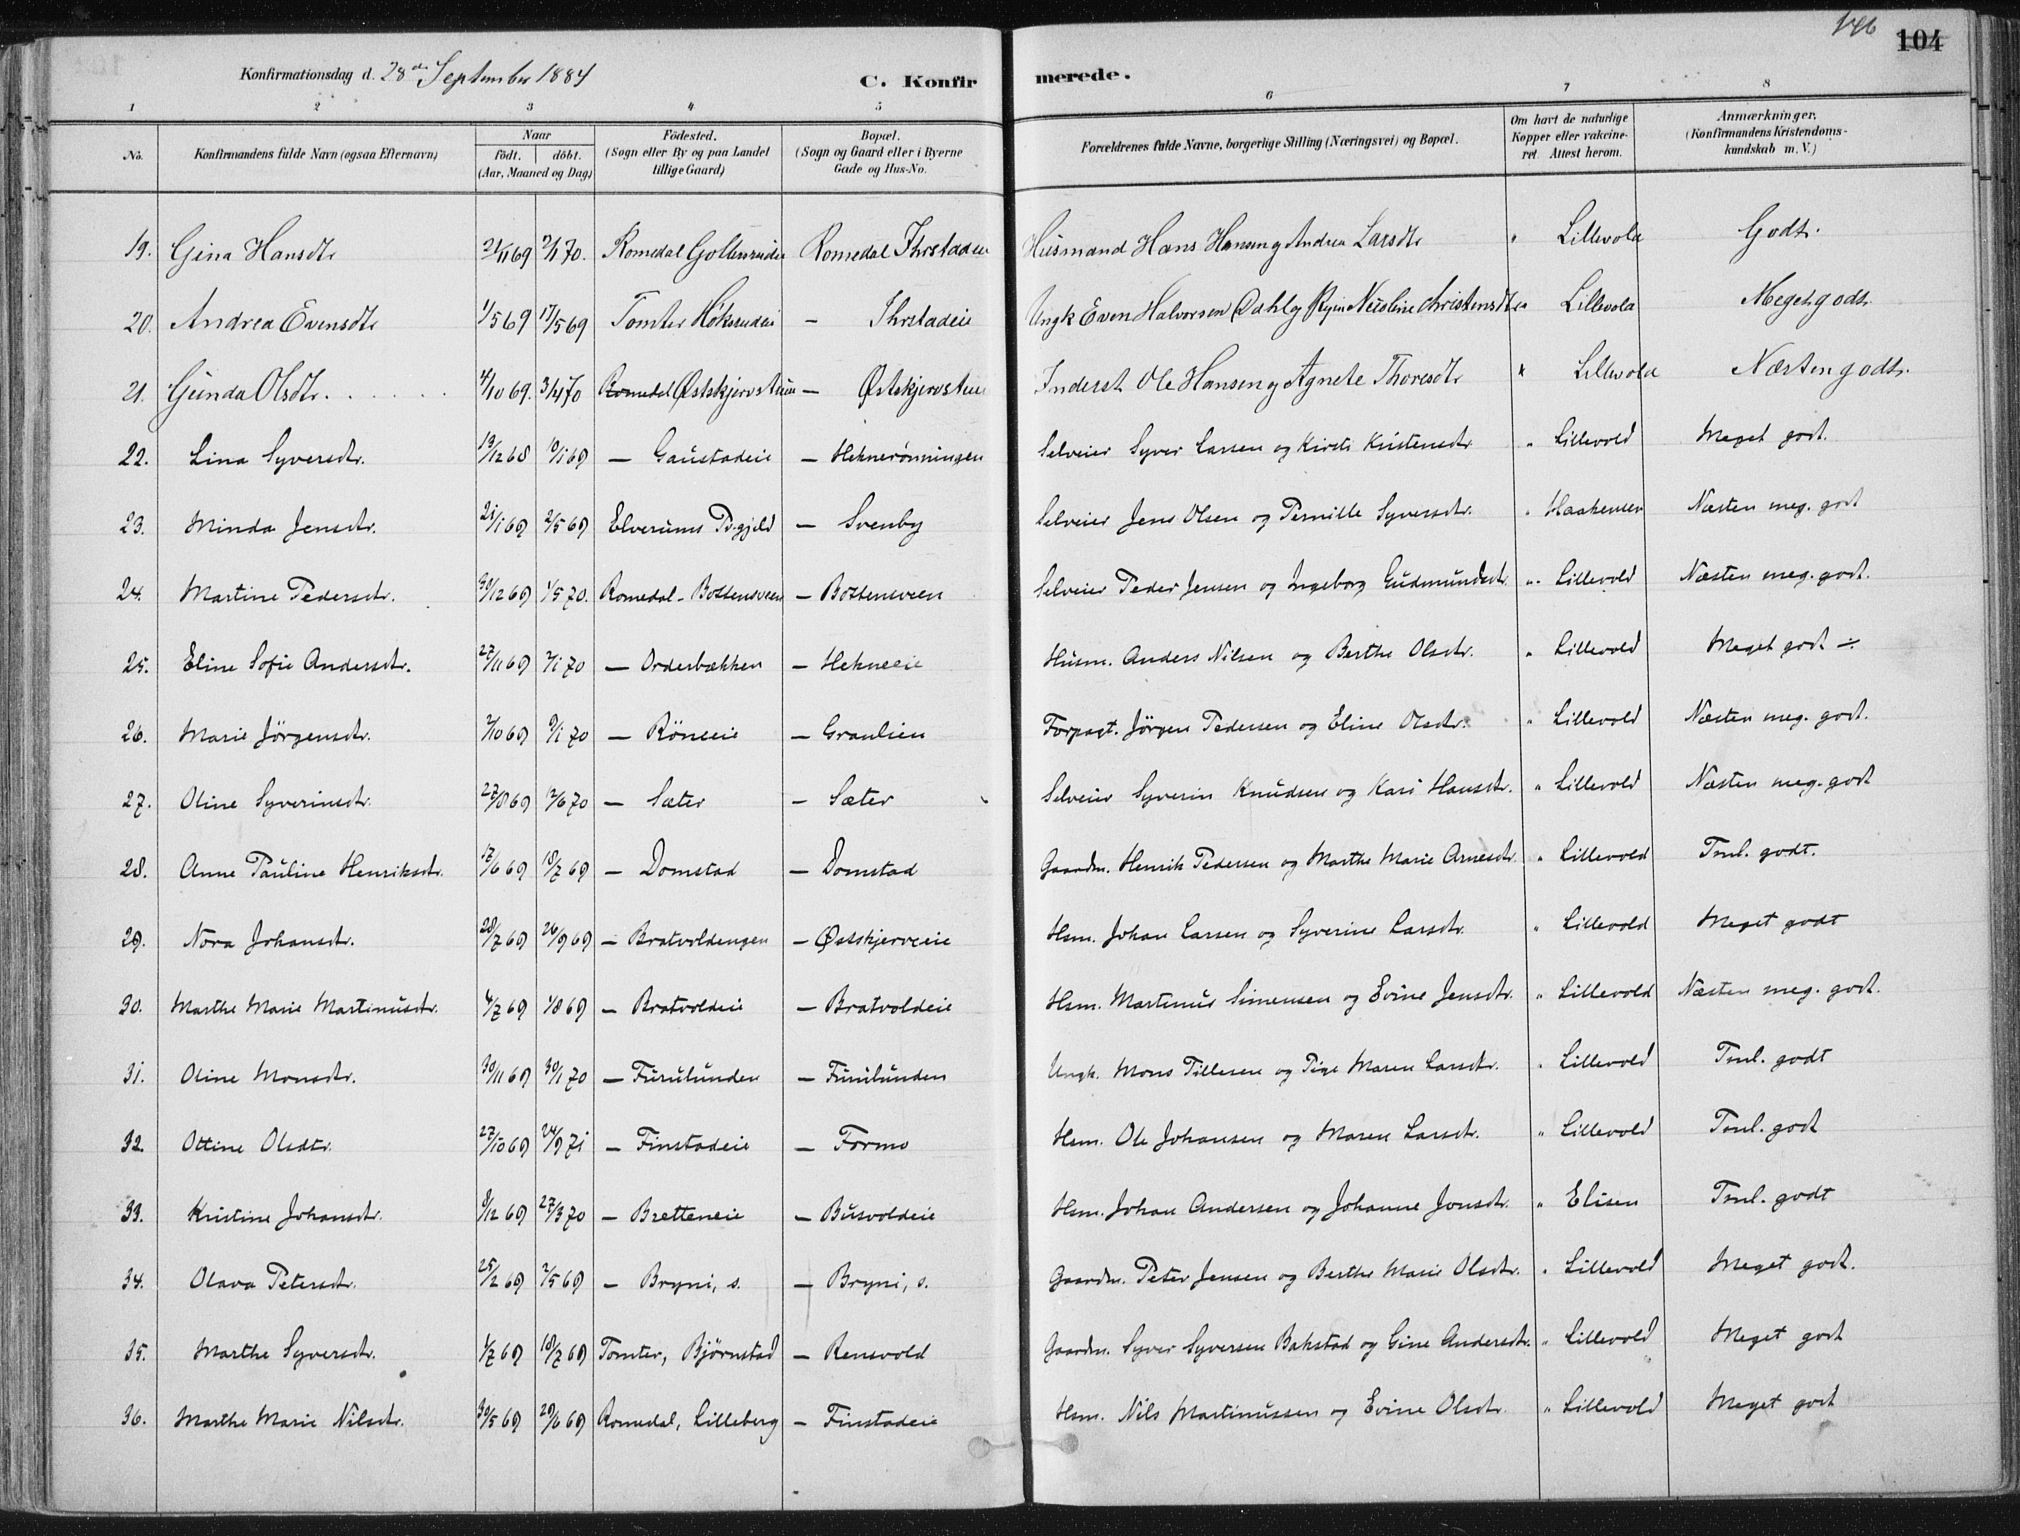 146 104
Konfirmationsdag d. 28de September 1884 C. Konfirmerede.
1 2 3 4 5 6 7 8
No. Konfirmandens fulde Navn (ogsaa Efternavn) Naar födt. döbt. (Aar, Maaned og Dag) Födested. (Sogn eller By og paa Landet tillige Gaard) Bopæl. (Sogn og Gaard eller i Byerne Gade og Hus-No. Forældrenes fulde Navne, borgerlige Stilling (Næringsvei) og Bopæl. Om havt de naturlige Kopper eller vakcineret. Attest herom. Anmærkninger. (Konfirmandens Kristendomskundskab m. V.)
19. Gina Hansdtr 21/11 69 2/1 70. Romedal Romedal Husmand Hans Hansen og Andrea Larsdtr " Lillevold Godt.
20. Andrea Evensdtr 1/5 69 17/5 69 Tomter – Ungk Even Halvorsen Christensdtr " Lillevold Meget godt.
21. Gunda Olsdtr. 4/10 69. 3/4 70 Romedal Østskjervstuen – Østskjervstuen Inderst Ole Hansen og Agnete Thoresdtr " Lillevold Næsten godt.
22. Lina Syversdtr. 19/12 68 – Gaustadeie – Heknerønningen Selveier Syver Larsen og Kirsti Kristensdtr " Lillevold Meget godt.
23. Minda Jensdtr. 21/1 69 2/5 69 Elverums Pr.gjeld – Svenby Selveier Jens Olsen og Pernille Syversdtr. " Næsten meg. godt
24. Martine Pedersdtr. 30/12 69 1/5 70. Romedal – Bottensveen – Bottensveen Selveier Peder Jensen og Ingeborg Gudmundsdtr. " Lillevold Næsten meg. godt.
25. Eline Sofie Andersdtr. 27/11 69 2/1 70 – Ordersbækken – Hekneeie Husm. Anders Nilsen og Berthe Olsdtr. " Lillevold Meget godt ÷
26. Marie Jörgensdtr. 2/10 69 9/1 70 – Röneeie – Graulien Forpagt. Jörgen Pedersen og Eline Olsdtr. " Lillevold Næsten meg. godt.
27. Oline Syverinsdtr. 27/8 69 2/6 70 – Sæter – Sæter Selveier Syverin Knudsen og Kari Hansdtr. " Lillevold Næsten meg. godt
28. Anne Pauline Henriksdtr. 17/6 69 18/7 69 – Domstad – Domstad Gaardm. Henrik Pedersen og Marthe Marie Arnesdtr. " Lillevold Tml. godt.
29. Nora Johansdtr. 28/7 69 26/9 69 – Bratvoldengen – Østskjerveie Hsm. Johan Larsen og Syverine Larsdtr. " Lillevold Meget godt
30. Marthe Marie Martinusdtr. 4/7 69 1/8 69 – Bratvoldeie – Bratvoldeie Hsm. Martinus Simensen og Evine Jensdtr. " Lillevold Næsten meg. godt.
31. Oline Monsdtr. 30/11 69 30/1 70 – Furulunden – Furulunden Ungk. Mons Tillesen og Pige Maren Larsdtr. " Lillevold Tml. godt
32. Ottine Olsdtr. 27/10 69 24/9 71 – Finstadeie – Formo Hsm. Ole Johansen og Maren Larsdtr. " Lillevold Tml. godt
33. Kristine Johansdtr. 8/12 69 27/3 70 – Bretteneie – Busvoldeie Hsm. Johan Andersen og Johanne Jonsdtr. " Elisen Tml. godt
34. Olava Petersdtr. 25/2 69 2/5 69 – Bryni, s. – Bryni, s. Gaardm. Peter Jensen og Berthe Marie Olsdtr. " Lillevold Meget godt.
35. Marthe Syversdtr. 1/7 69 18/7 69 Tomter, Björnstad – Rensvold Gaardm. Syver Syversen Bakstad og Gine Andersdtr. " Lillevold Meget godt
36. Marthe Marie Nilsdtr. 30/5 69 20/6 69 Romedal, Lilleberg – Finstadeie Hsm. Nils Martinussen og Evine Olsdtr. " Lillevold Meget godt